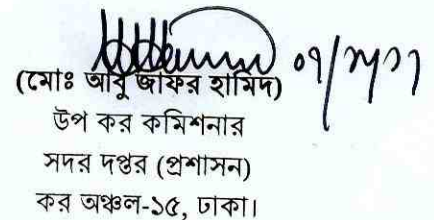 (মোঃ আবু জাফর হামিদ)
উপ কর কমিশনার
সদর দপ্তর (প্রশাসন)
কর অঞ্চল-১৫, ঢাকা।